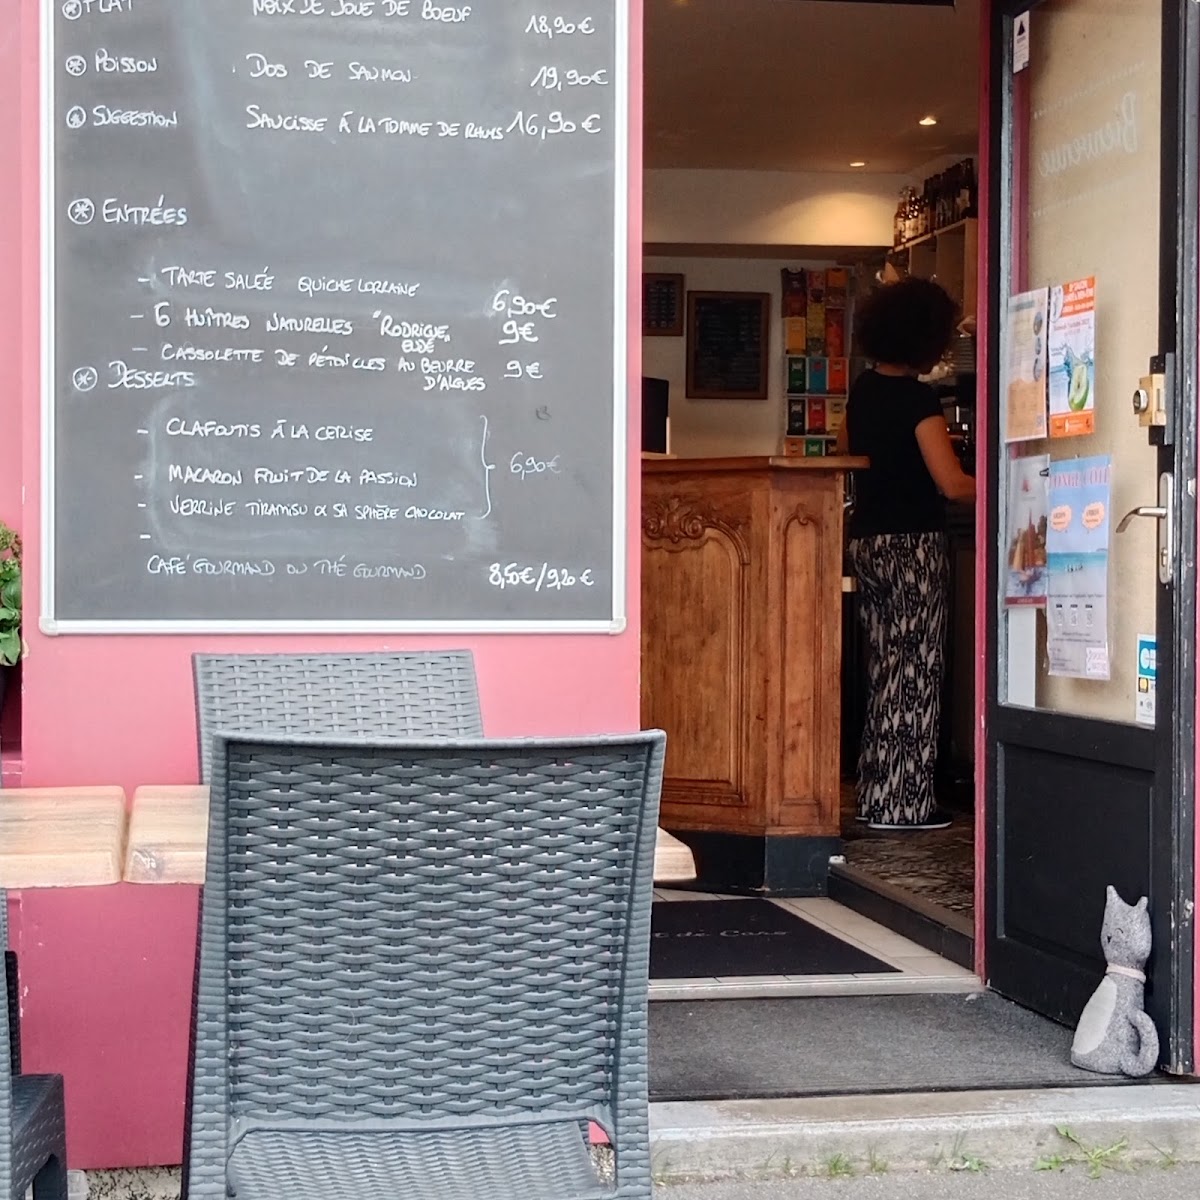 PLAT NOIX DE JOUE DE BOEUF 18,90€
POISSON DOS DE SAUMON 19,90€
SUGGESTION SAUCISSE À LA TOMME DE RHUYS 16,90€
ENTRÉES
- TARTE SALÉE QUICHE LORRAINE 6,90€
- 6 HUÎTRES NATURELLES "RODRIGUE" 9€
- CASSOLETTE DE PÉTONCLES AU BEURRE 9€
D'ALGUES
DESSERTS
- CLAFOUTIS À LA CERISE
- MACARON FRUIT DE LA PASSION 6,90€
- VERRINE TIRAMISU & SA SPHÈRE CHOCOLAT
-
CAFÉ GOURMAND OU THÉ GOURMAND 8,50€/9,20€
Bienvenue
de Caro
CB